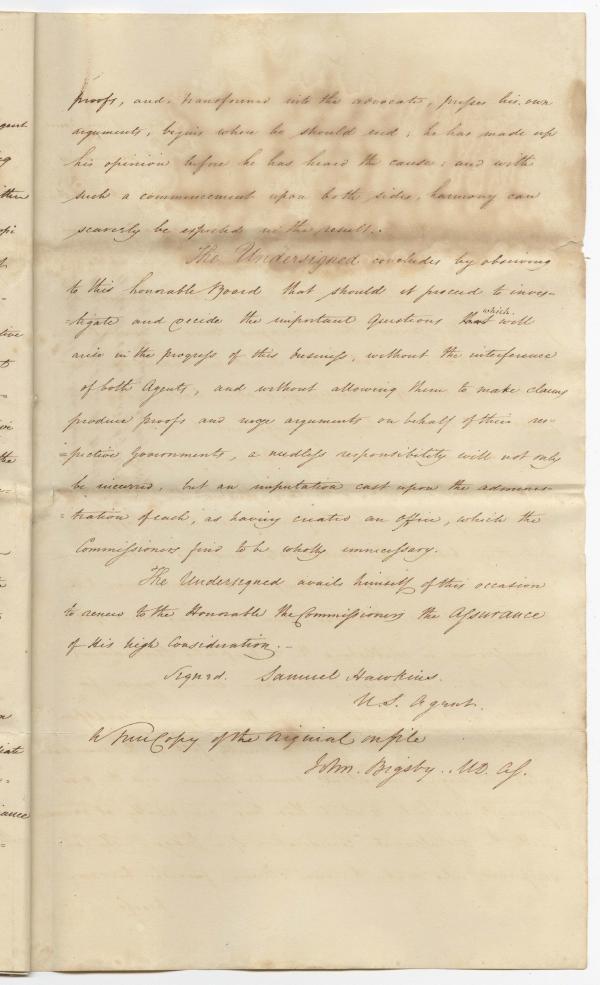 proofs, and, transformed into the advocate, presses his own
arguments, begins where he should end; he has made up
his opinion before he has heard the cause: and with
such a commencement upon both sides, harmony can
scarcely be expected in the result.
The Undersigned concludes by observing
to this honorable Board that should it proceed to inves-
-tigate and decide the important Questions which will
arise in the progress of this business, without the interference
of both Agents, and without allowing them to make claims
produce proofs and urge arguments on behalf of their res-
=pective Governments, a needless responsibility will not only
be incurred, but an imputation cast upon the adminis-
=tration of each, as having created an office, which the
Commissioners find to be wholly unnecessary.
The Undersigned avails himself of this occasion
to renew to the Honorable the Commissioners the Assurance
of His high Consideration.-
Signed. Samuel Hawkins.
U.S. Agent.
A True Copy of the Original on file
John. Bigsby. MD. As.
gent
ng
itten
opi
tive
the
n
iate
iance